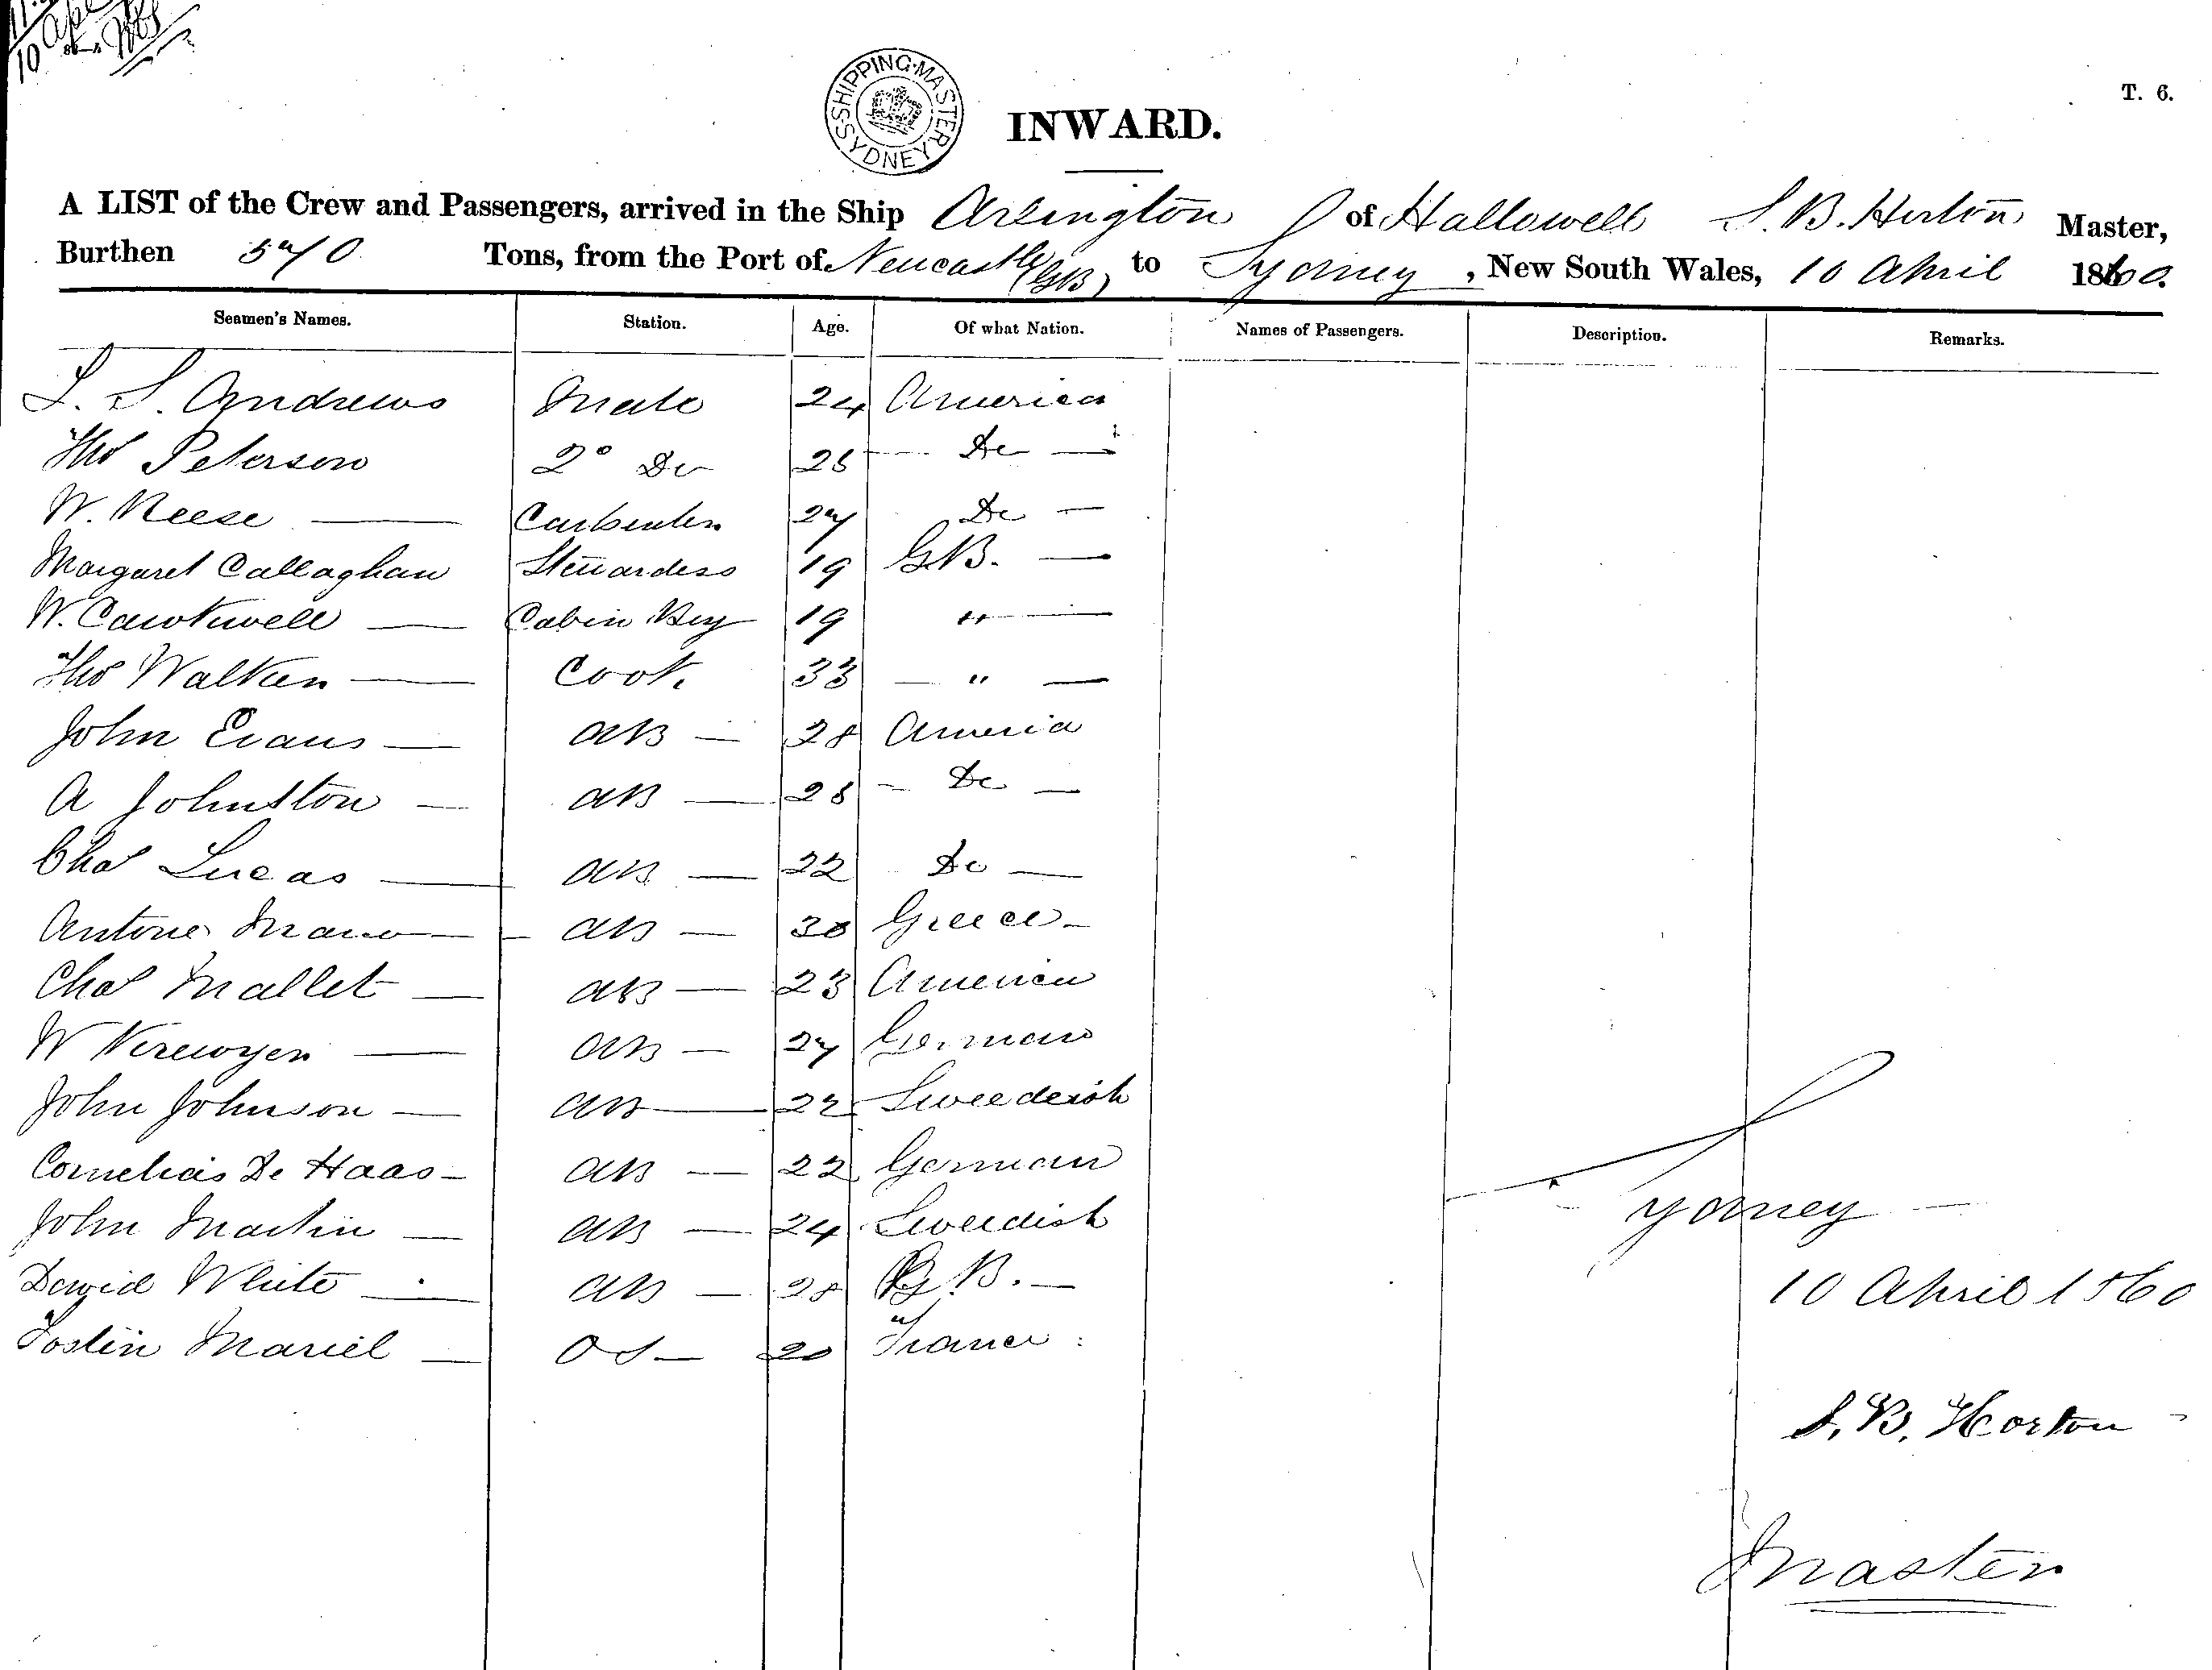 10 Apl
SHIPPING MASTER SYDNEY
T. 6.
INWARD.
A LIST of the Crew and Passengers, arrived in the Ship Arlington of Hallowell S. B. Horton Master,
Burthen 540 Tons, from the Port of Newcastle (GB) to Sydney, New South Wales, 10 April 1860.
Seamen's Names. Station. Age. Of what Nation. Names of Passengers. Description. Remarks.
L. S. Andrews Mate 24 America
Thos Peterson 2o Do 25 Do
W. Reese Carpenter 27 Do
Margaret Callaghan Stewardess 19 GB.
W. Cawkwell Cabin Boy 19 "
Thos Walker Cook. 33 "
John Evans AB 28 America
A Johnston AB 28 Do
Chas Lucas AB 22 Do
Antone AB 30 Greece
Chas Mallet AB 23 America
W AB 27 German
John Johnson AB 22 Sweedeish
Cornelias De Haas AB 22 German
John Martin AB 24 Sweedish
David White AB 28 GB.
Mariel OS 20 France
Sydney
10 April 1860
S. B. Horton
Master